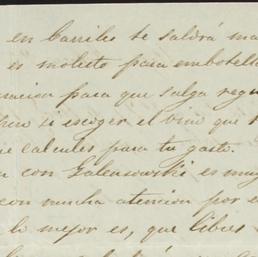 en barriles te saldrá ma
es molesto para embotella
racion para que salga regu
si escoger el vino que
e calcules para tu gasto.
con Galensowski es muy
con mucha atencion por e
lo mejor es, que libres